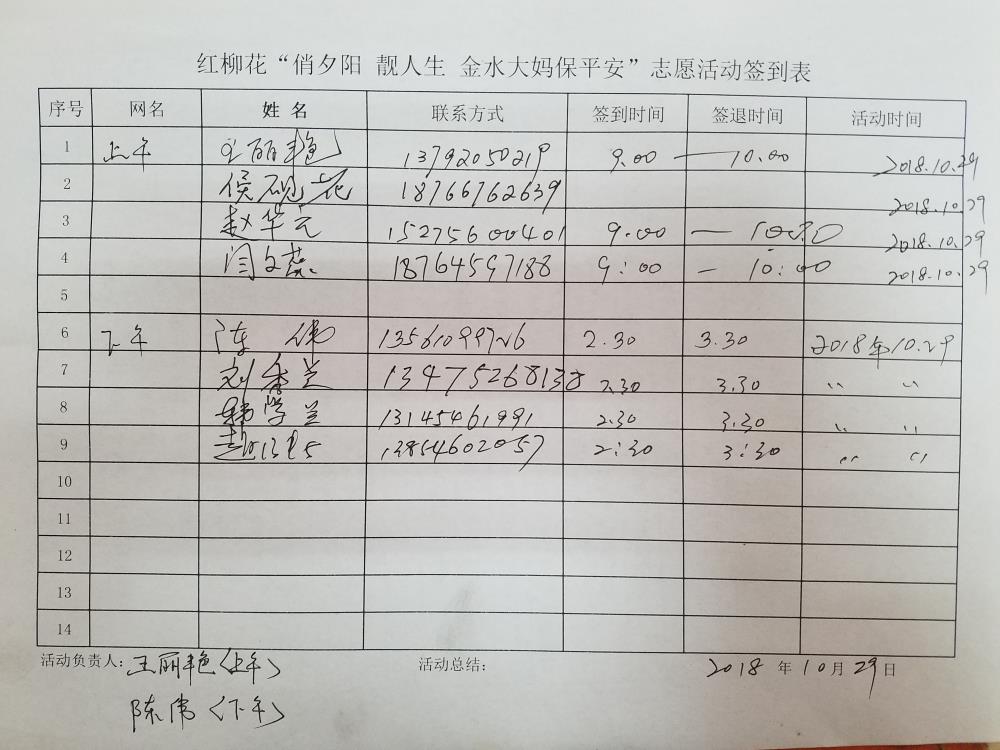 红柳花“俏夕阳 靓人生 金水大妈保平安”志愿活动签到表
序号 网名 姓名 联系方式 签到时间 签退时间 活动时间
1 上午 王丽艳 13792050219 9.00 — 10.00 2018.10.29
2 侯砚花 18766762639 2018.10.29
3 赵华元 15275600401 9.00 — 10:30 2018.10.29
4 闫文燕 18764597188 9:00 — 10:00 2018.10.29
5
6 下午 陈伟 13561099726 2.30 3.30 2018年10.29
7 刘香兰 13475268138 2.30 3.30 〃 〃
8 韩学兰 13145461991 2.30 3.30 〃 〃
9 13854602057 2:30 3:30 〃 〃
10
11
12
13
14
活动负责人：王丽艳（上午） 活动总结： 2018年10月29日
陈伟（下午）